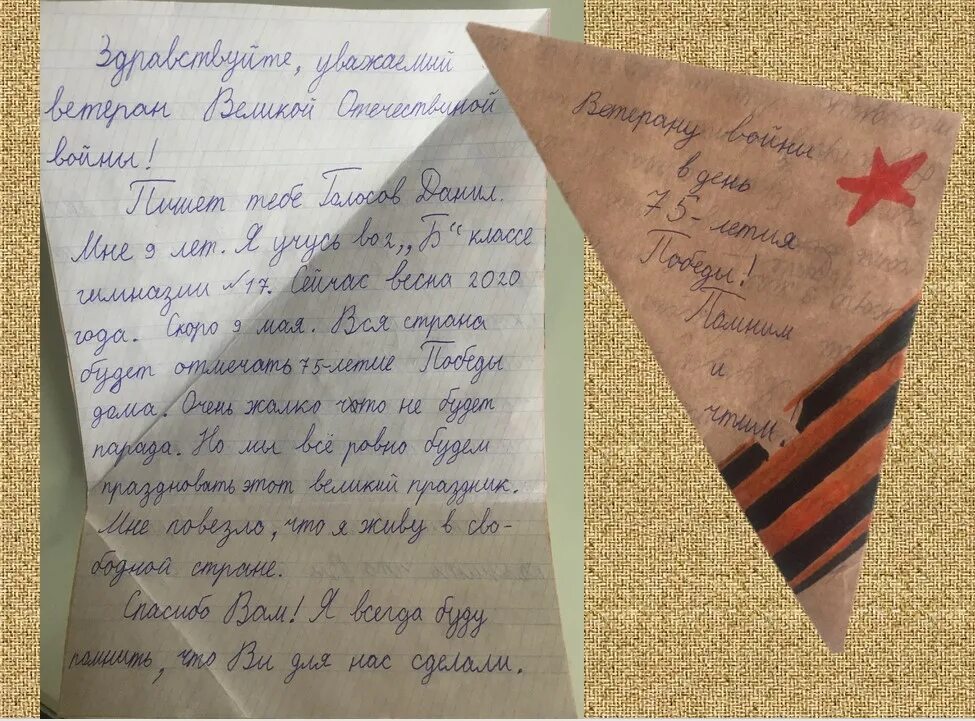 Здравствуйте, уважаемий
ветеран Великой Отечествиной
войны!
Пишет тебе Голосов Данил.
Мне 9 лет. Я учусь во 2 „Б“ классе
гимназии №17. Сейчас весна 2020
года. Скоро 9 мая. Вся страна
будет отмечать 75-летие Победы
дома. Очень жалко что не будет
парада. Но мы всё ровно будем
праздновать этот великий праздник.
Мне повезло, что я живу в сво-
бодной стране.
Спасибо Вам! Я всегда буду
помнить, что Ви для нас сделали.
Ветерану войны
в день
75-летия
Победы!
Помним
и
чтим.